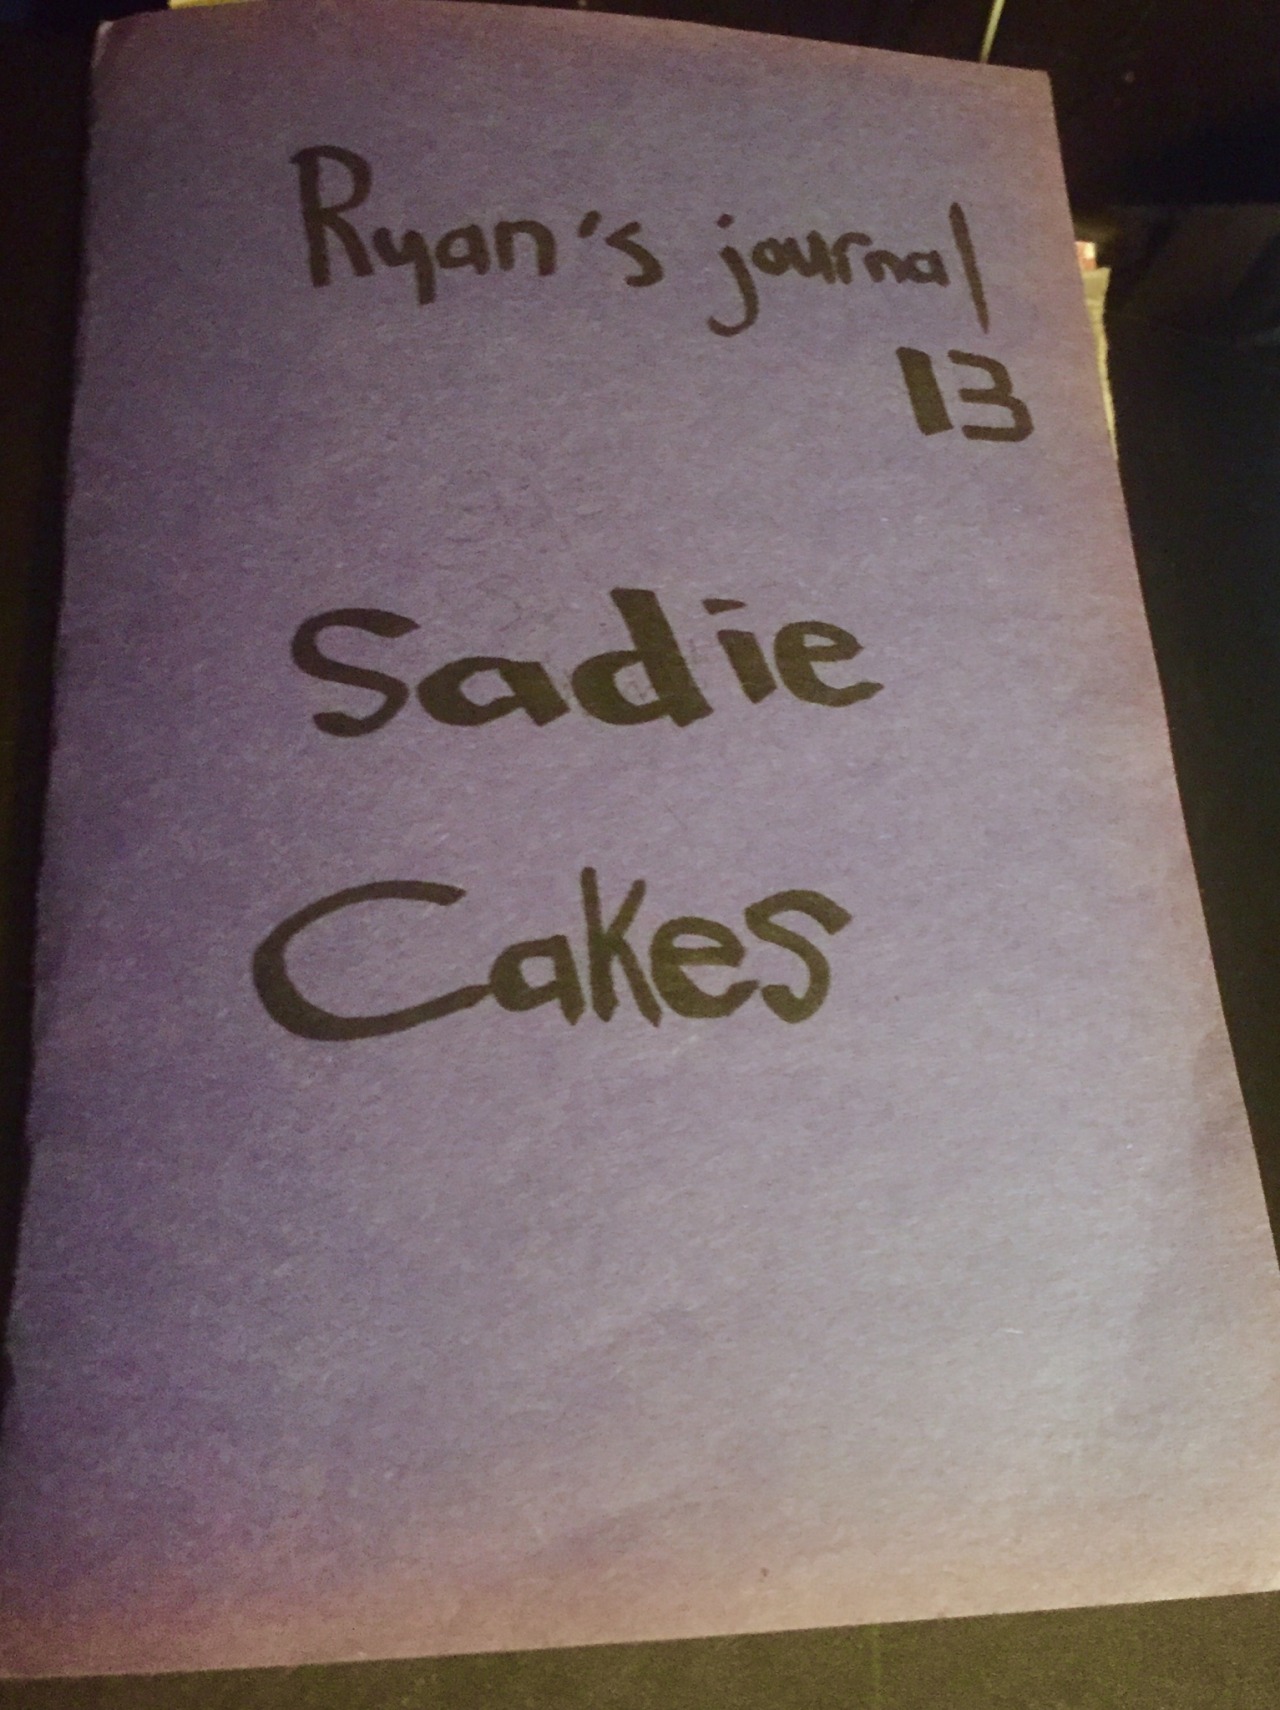 Ryan's journal
13
Sadie
Cakes